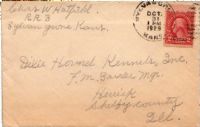 Chas W Hatfield
R.R. 3
Sylvan Grove Kans.
SYLVAN GROVE
OCT
31
1 PM
1929
KANS.
Dixie Hormel Kennels, Inc,
F.M. Baxter Mgr.
Herrick
Shelby county
Ill.